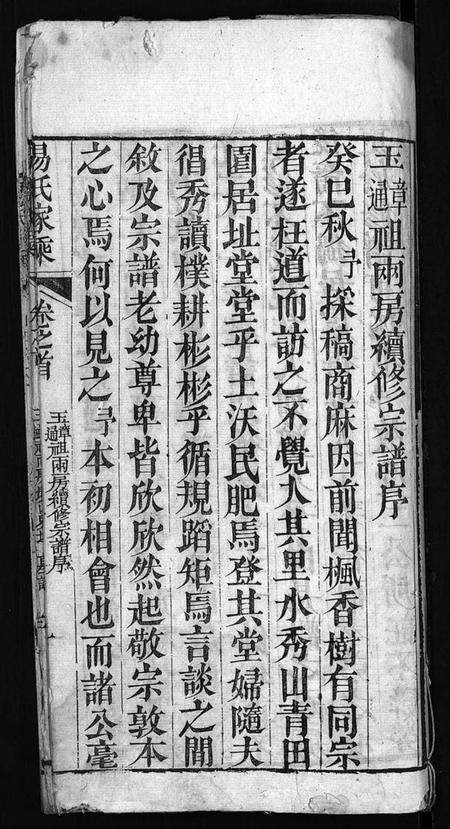 玉章通祖兩房續修宗譜序
癸巳秋予採稿商麻因前聞楓香樹有同宗
者遂枉道而訪之不覺入其里水秀山青田
園居址堂堂乎土沃民肥焉登其堂婦隨夫
倡秀讀樸耕彬彬乎循規蹈矩焉言談之間
敘及宗譜老幼尊卑皆欣欣然起敬宗敦本
之心焉何以見之予本初相會也而諸公毫
易氏家乘
卷之首
玉章通祖兩房續修宗譜序